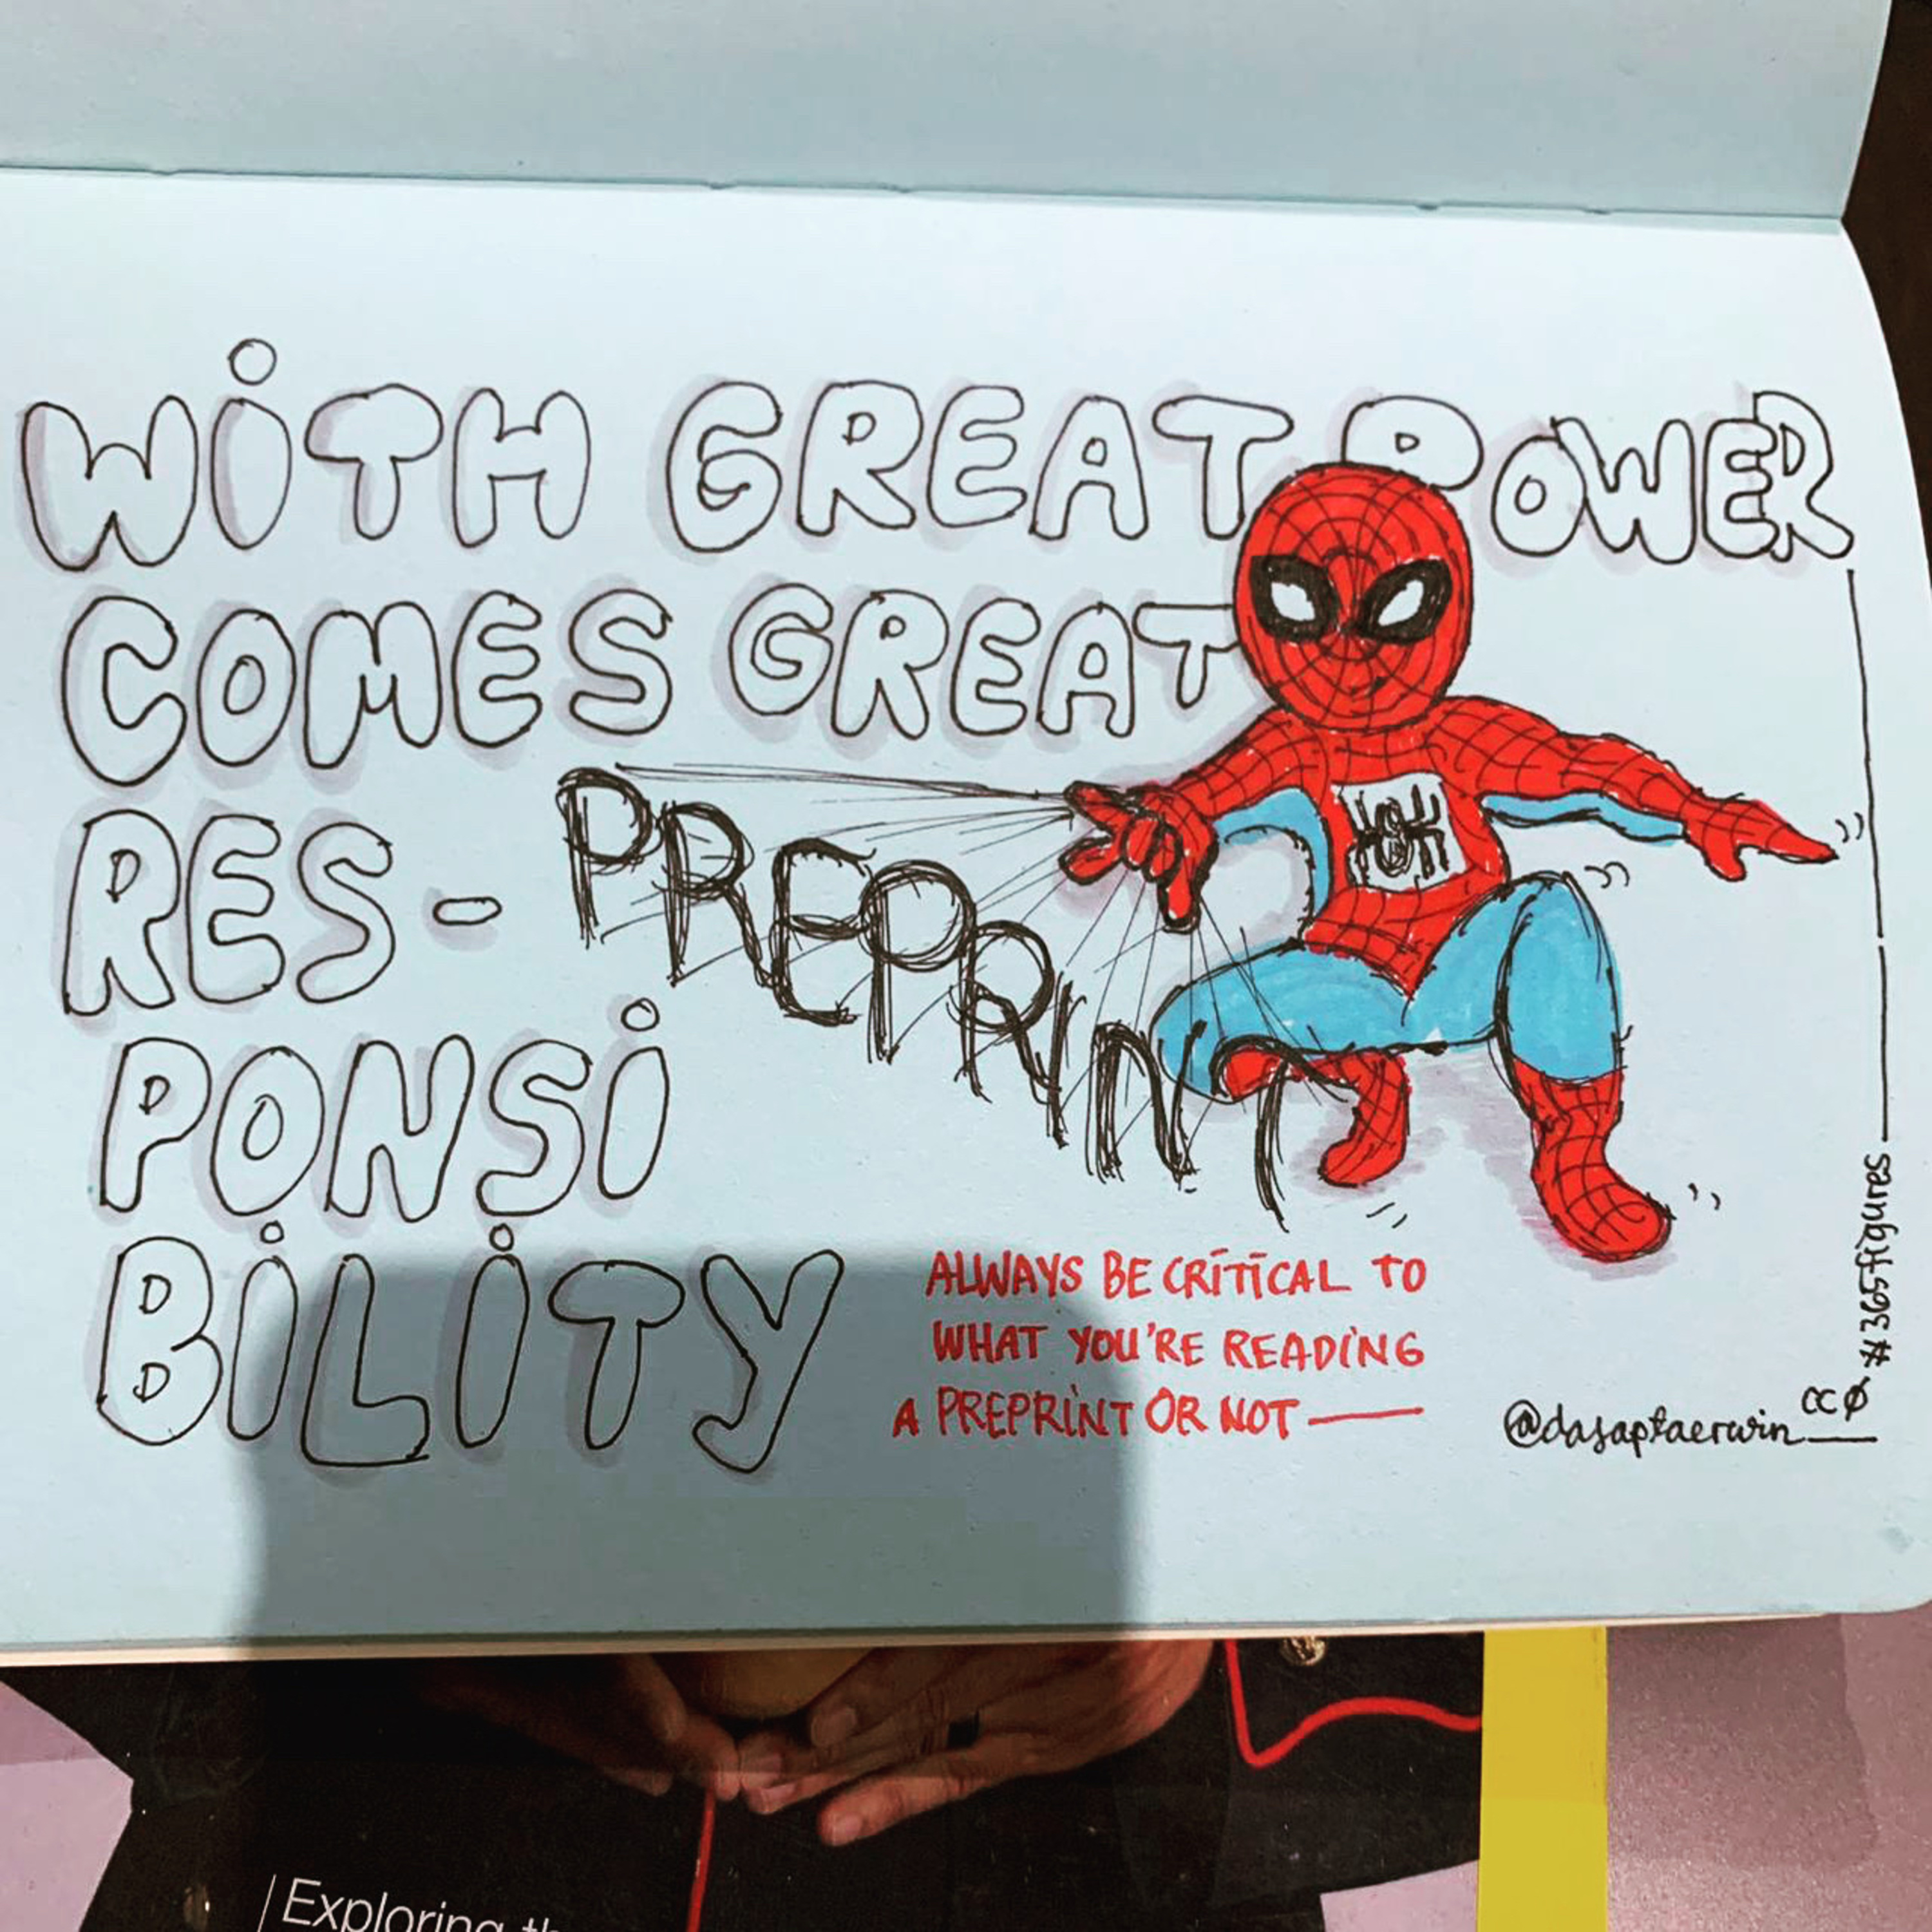 WiTH GREAT POWER
COMES GREAT
RES-
PONSi
BiLiTY
PREPRINT
ALWAYS BE CRITICAL TO
WHAT YOU'RE READING
A PREPRINT OR NOT
@dasaptaerwin
CC0
#365figures
Exploring